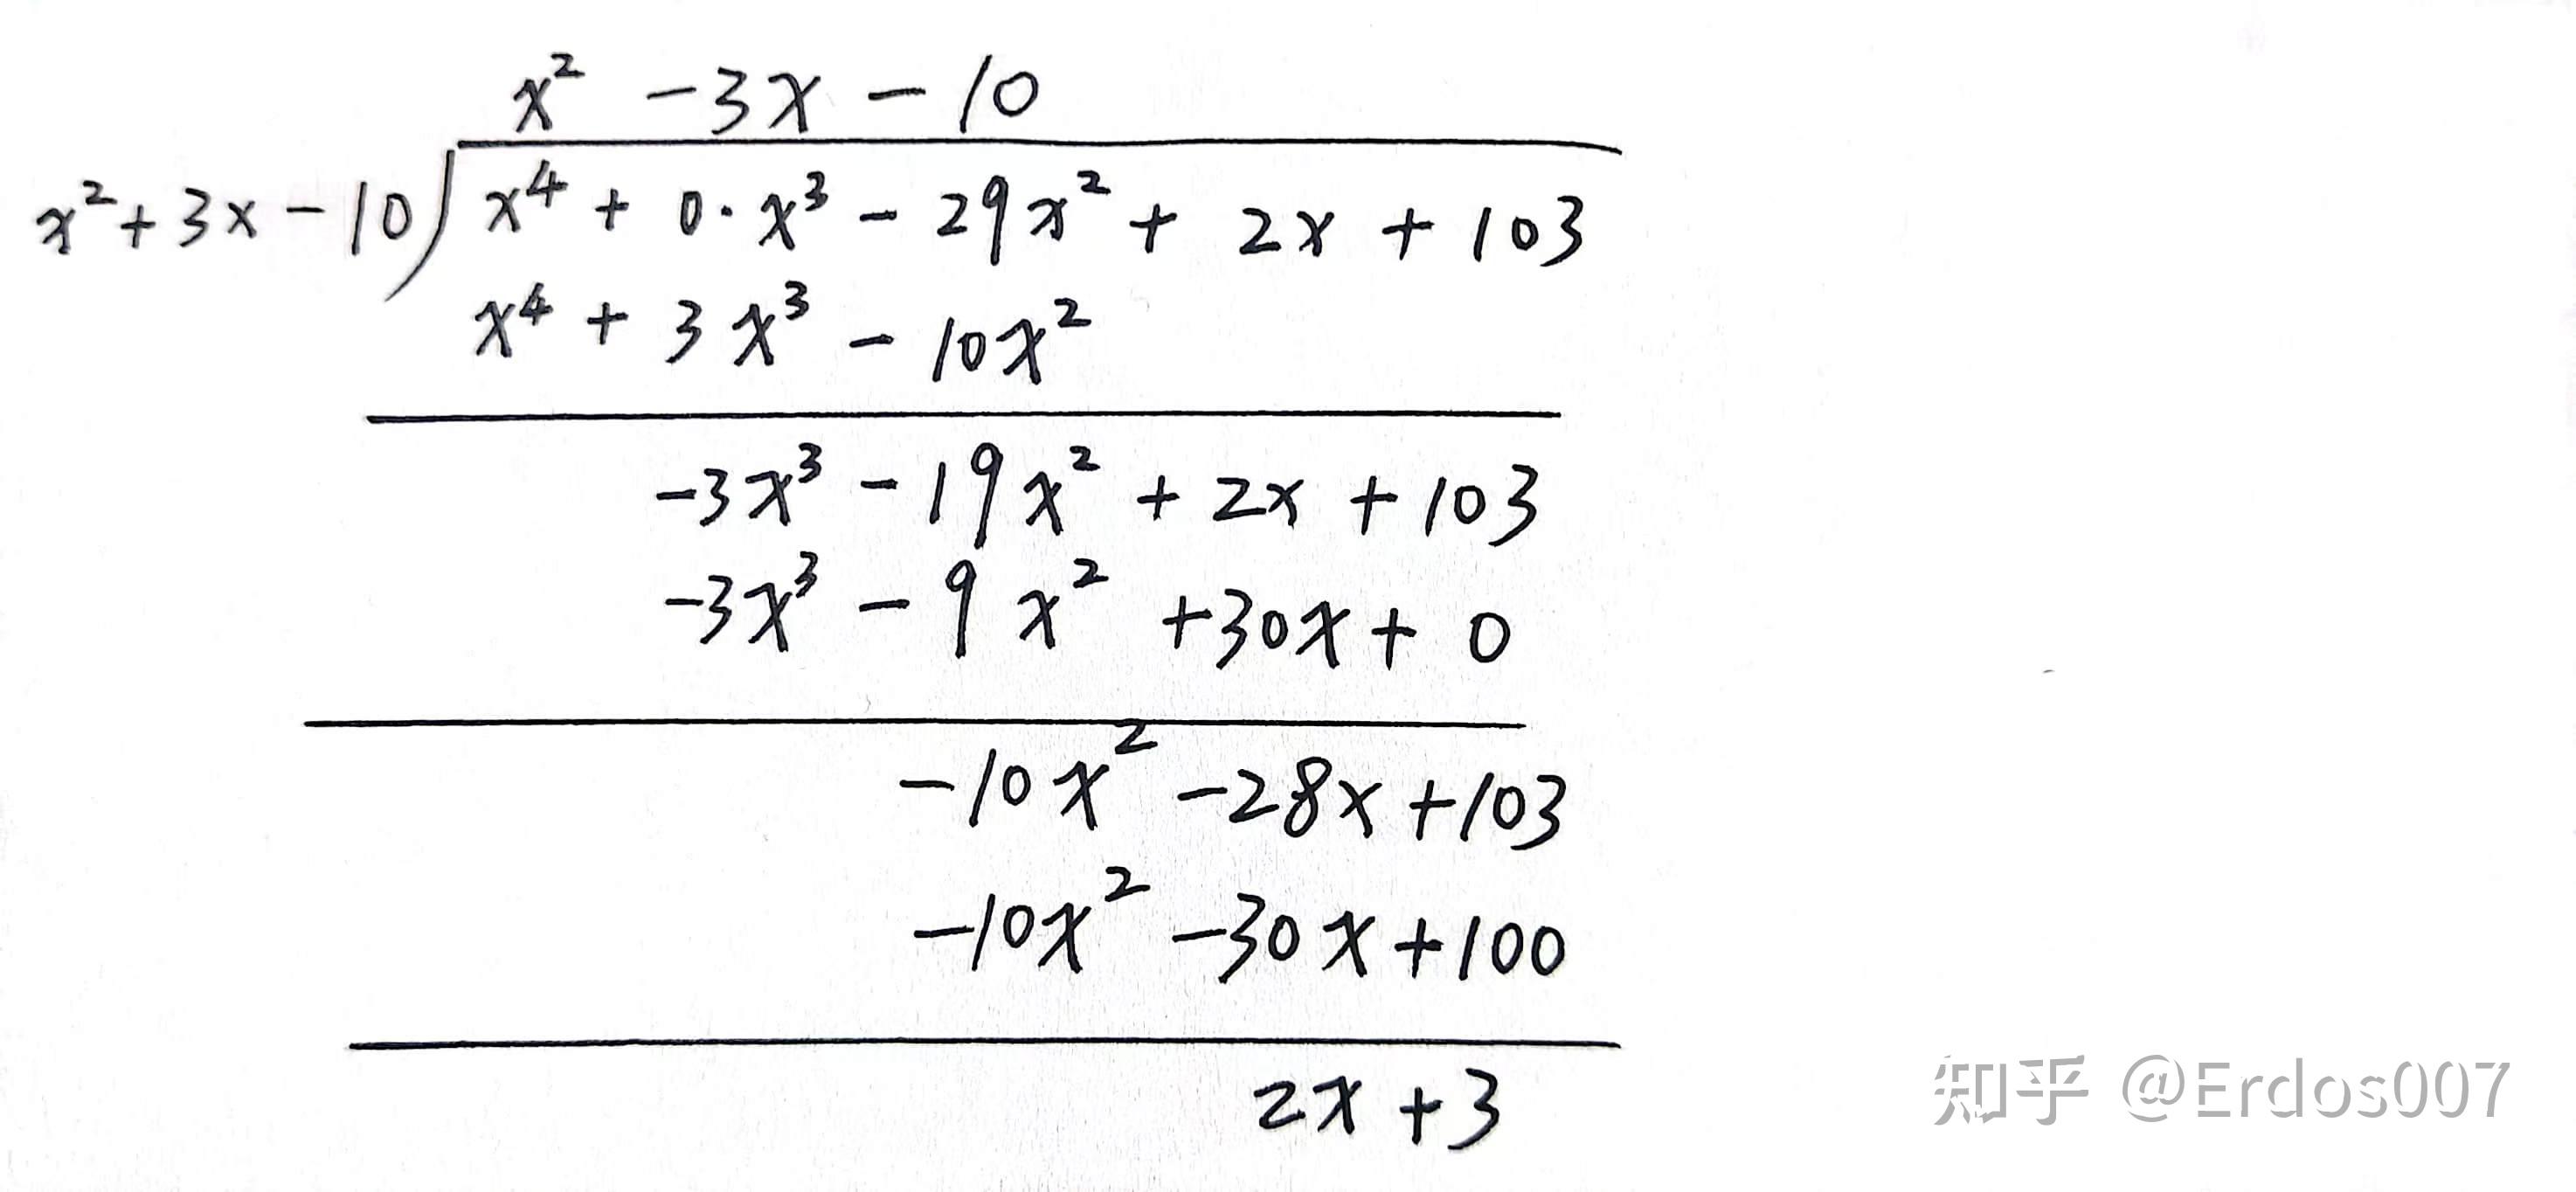 x² - 3x - 10
x² + 3x - 10 ) x⁴ + 0·x³ - 29x² + 2x + 103
x⁴ + 3x³ - 10x²
-3x³ - 19x² + 2x + 103
-3x³ - 9x² + 30x + 0
-10x² - 28x + 103
-10x² - 30x + 100
2x + 3
知乎 @Erdos007